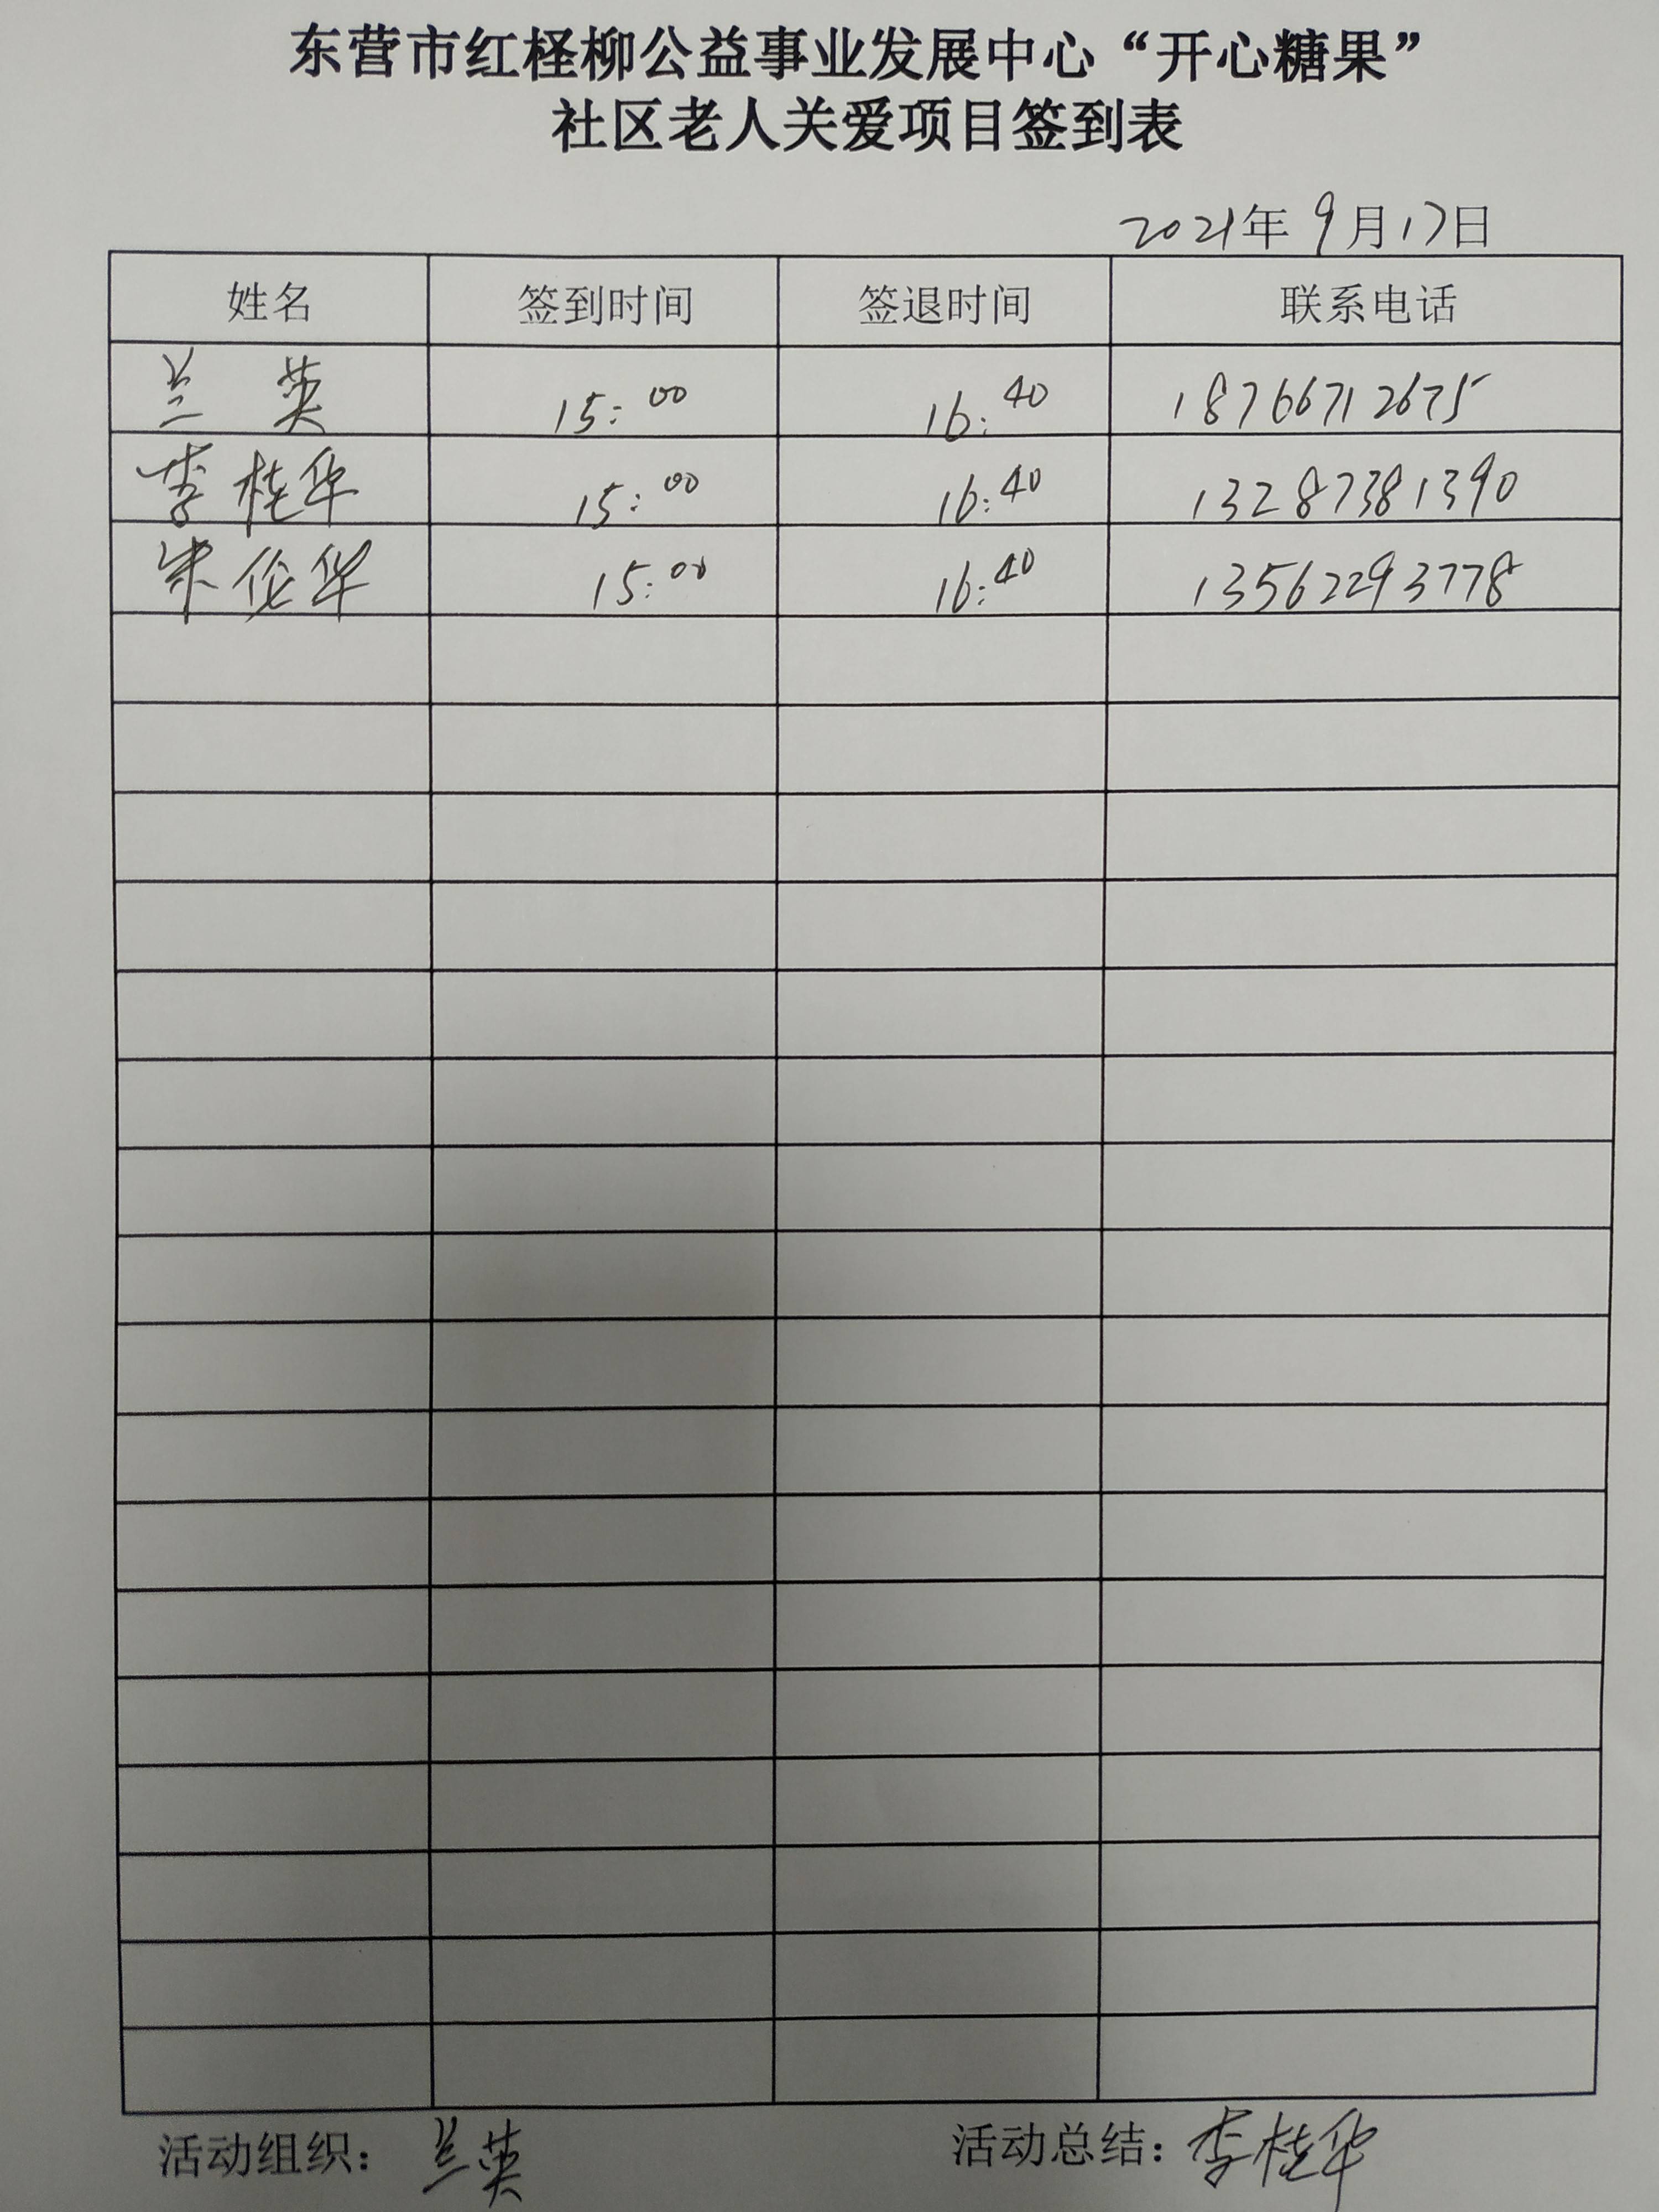 东营市红柽柳公益事业发展中心“开心糖果”
社区老人关爱项目签到表
2021年 9月17日
姓名 签到时间 签退时间 联系电话
兰 英 15:00 16:40 18766712675
李桂华 15:00 16:40 13287381390
朱伦华 15:00 16:40 13562293778
活动组织：兰英 活动总结：李桂华